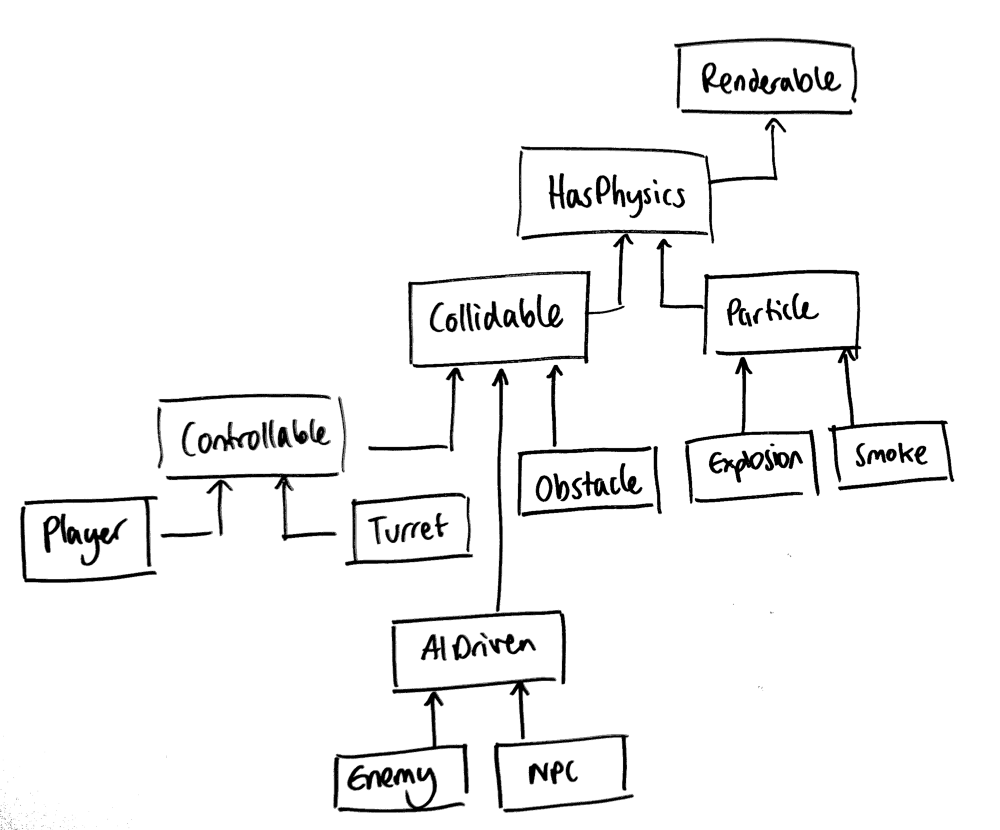 Renderable
HasPhysics
Collidable
Particle
Controllable
Explosion
Smoke
Obstacle
Player
Turret
AIDriven
Enemy
NPC